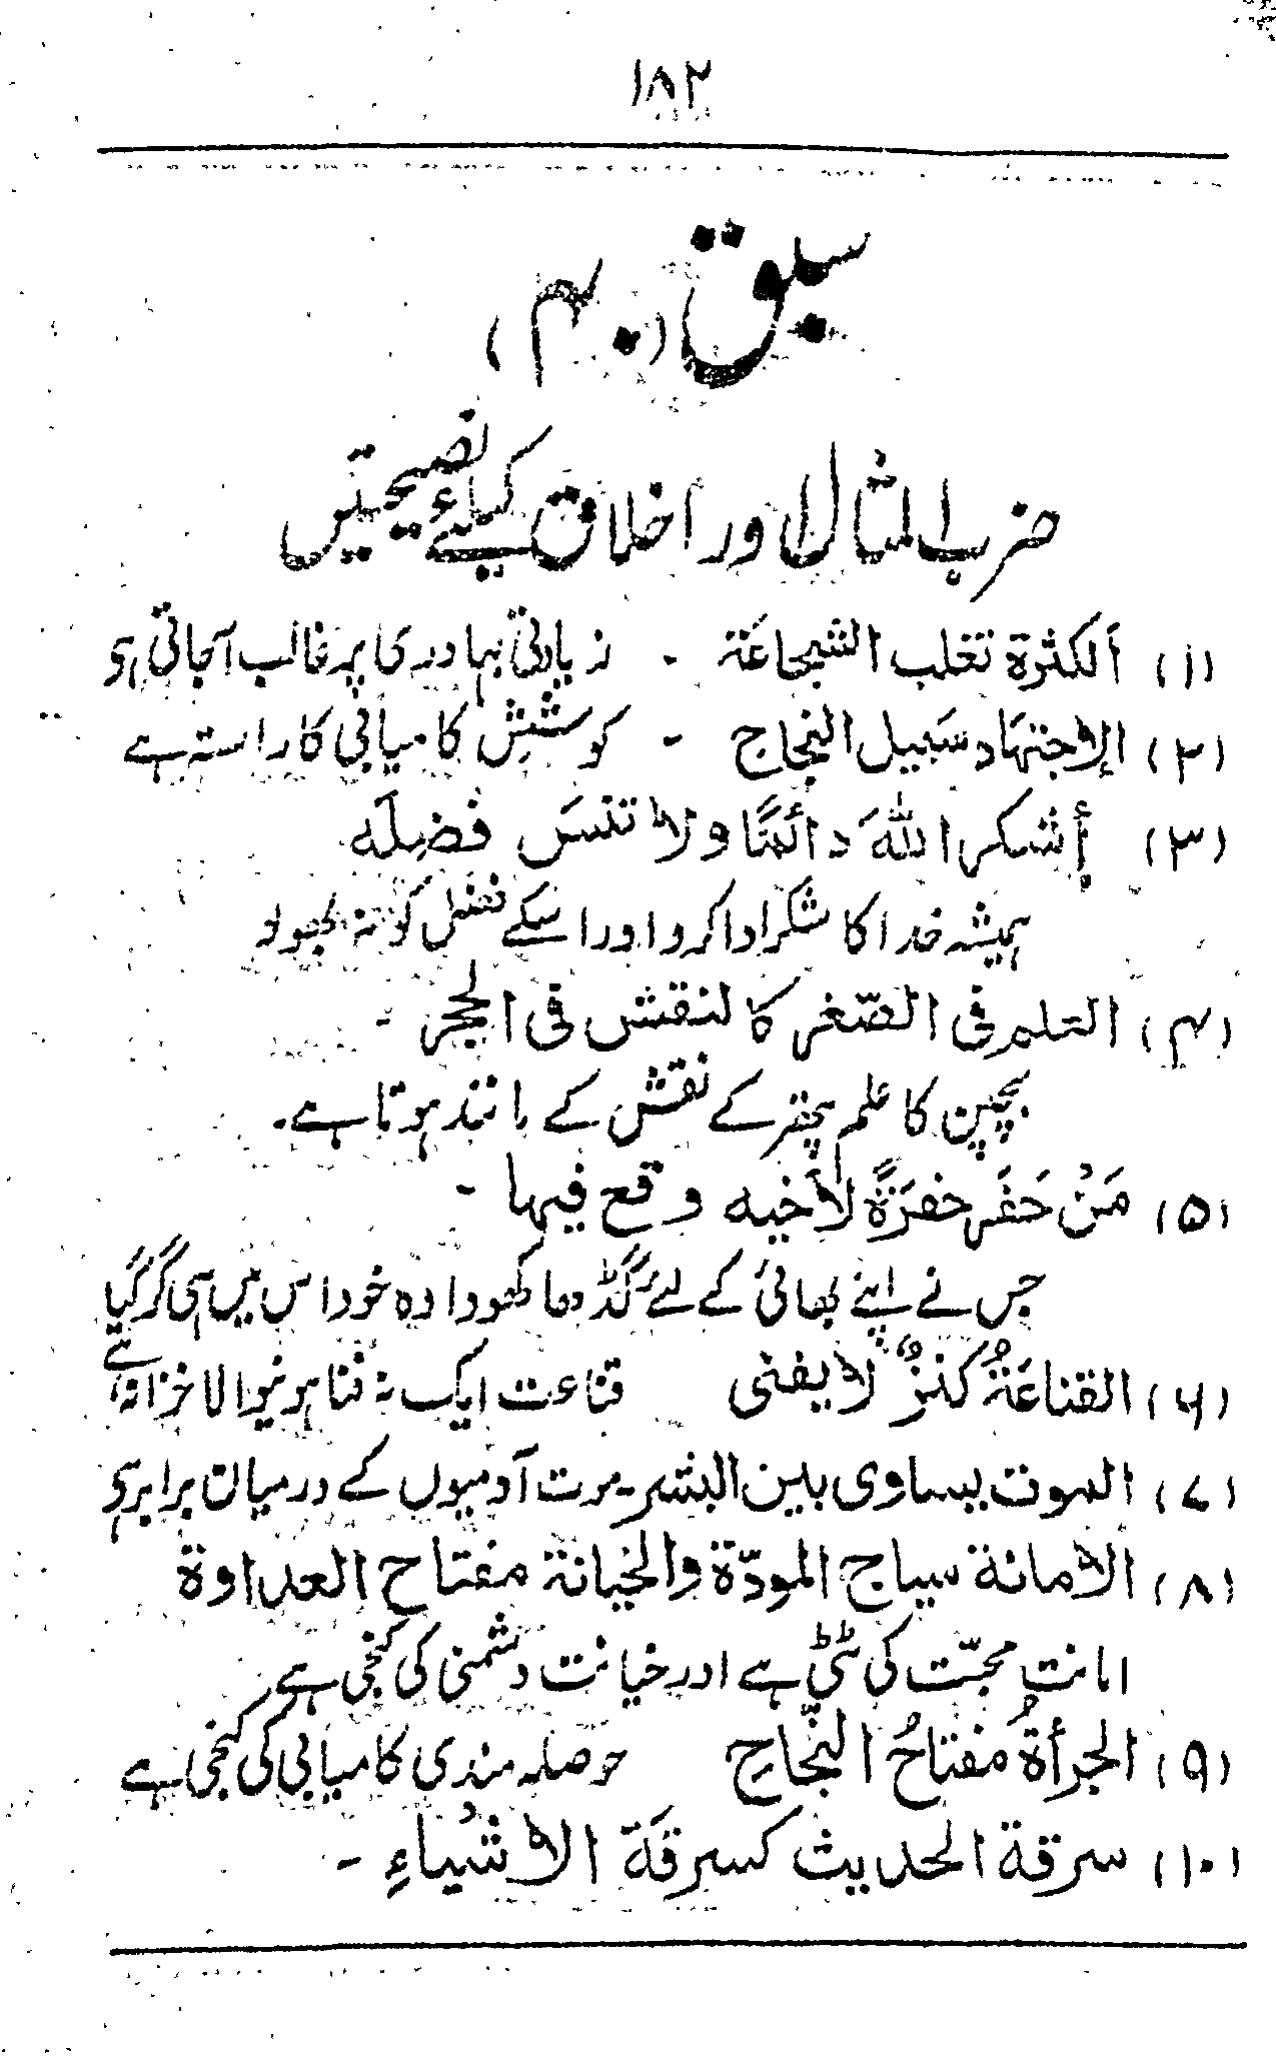 ۱۸۲
سبق (۴۰)
ضرب المثال اور اخلاق کیلئے نصیحتیں
(۱) ألکثرة تغلب الشجاعَة - زیادتی بہادری پر غالب آجاتی ہی
(۲) الإجتهَاد سَبيل النجاح - کوشش کامیابی کا راستہ ہے
(۳) إُشكر اللهَ دائمًا ولا تنسَ فضلَه
ہمیشہ خدا کا شکر ادا کرو اور اسکے فضل کو نہ بھولو
(۴) التلم فى الصّغر كا لنقش فى الحجر -
بچپن کا علم پتھر کے نقش کے مانند ہوتا ہے۔
(۵) مَنْ حَفَر حفرَةً لأخيه وقع فيها -
جس نے اپنے بھائی کے لئے گڈھا کھودا وہ خود اس میں ہی گر گیا
(۶) القناعَةُ كنزٌ لا يفنى قناعت ایک نہ فنا ہونیوالا خزانہ ہے
(۷) الموت يساوى بين البشر - موت آدمیوں کے درمیان برابر ہی
(۸) الأمانة سياج المودّة والخيانة مفتاح العداوة
امانت محبّت کی ٹٹی ہے اور خیانت دشمنی کی کنجی ہے
(۹) الجرأةُ مفتاحُ النّجاحِ حوصلہ مندی کامیابی کی کنجی ہے
(۱۰) سرقة الحديث كسرقَة الأشيَاءِ -